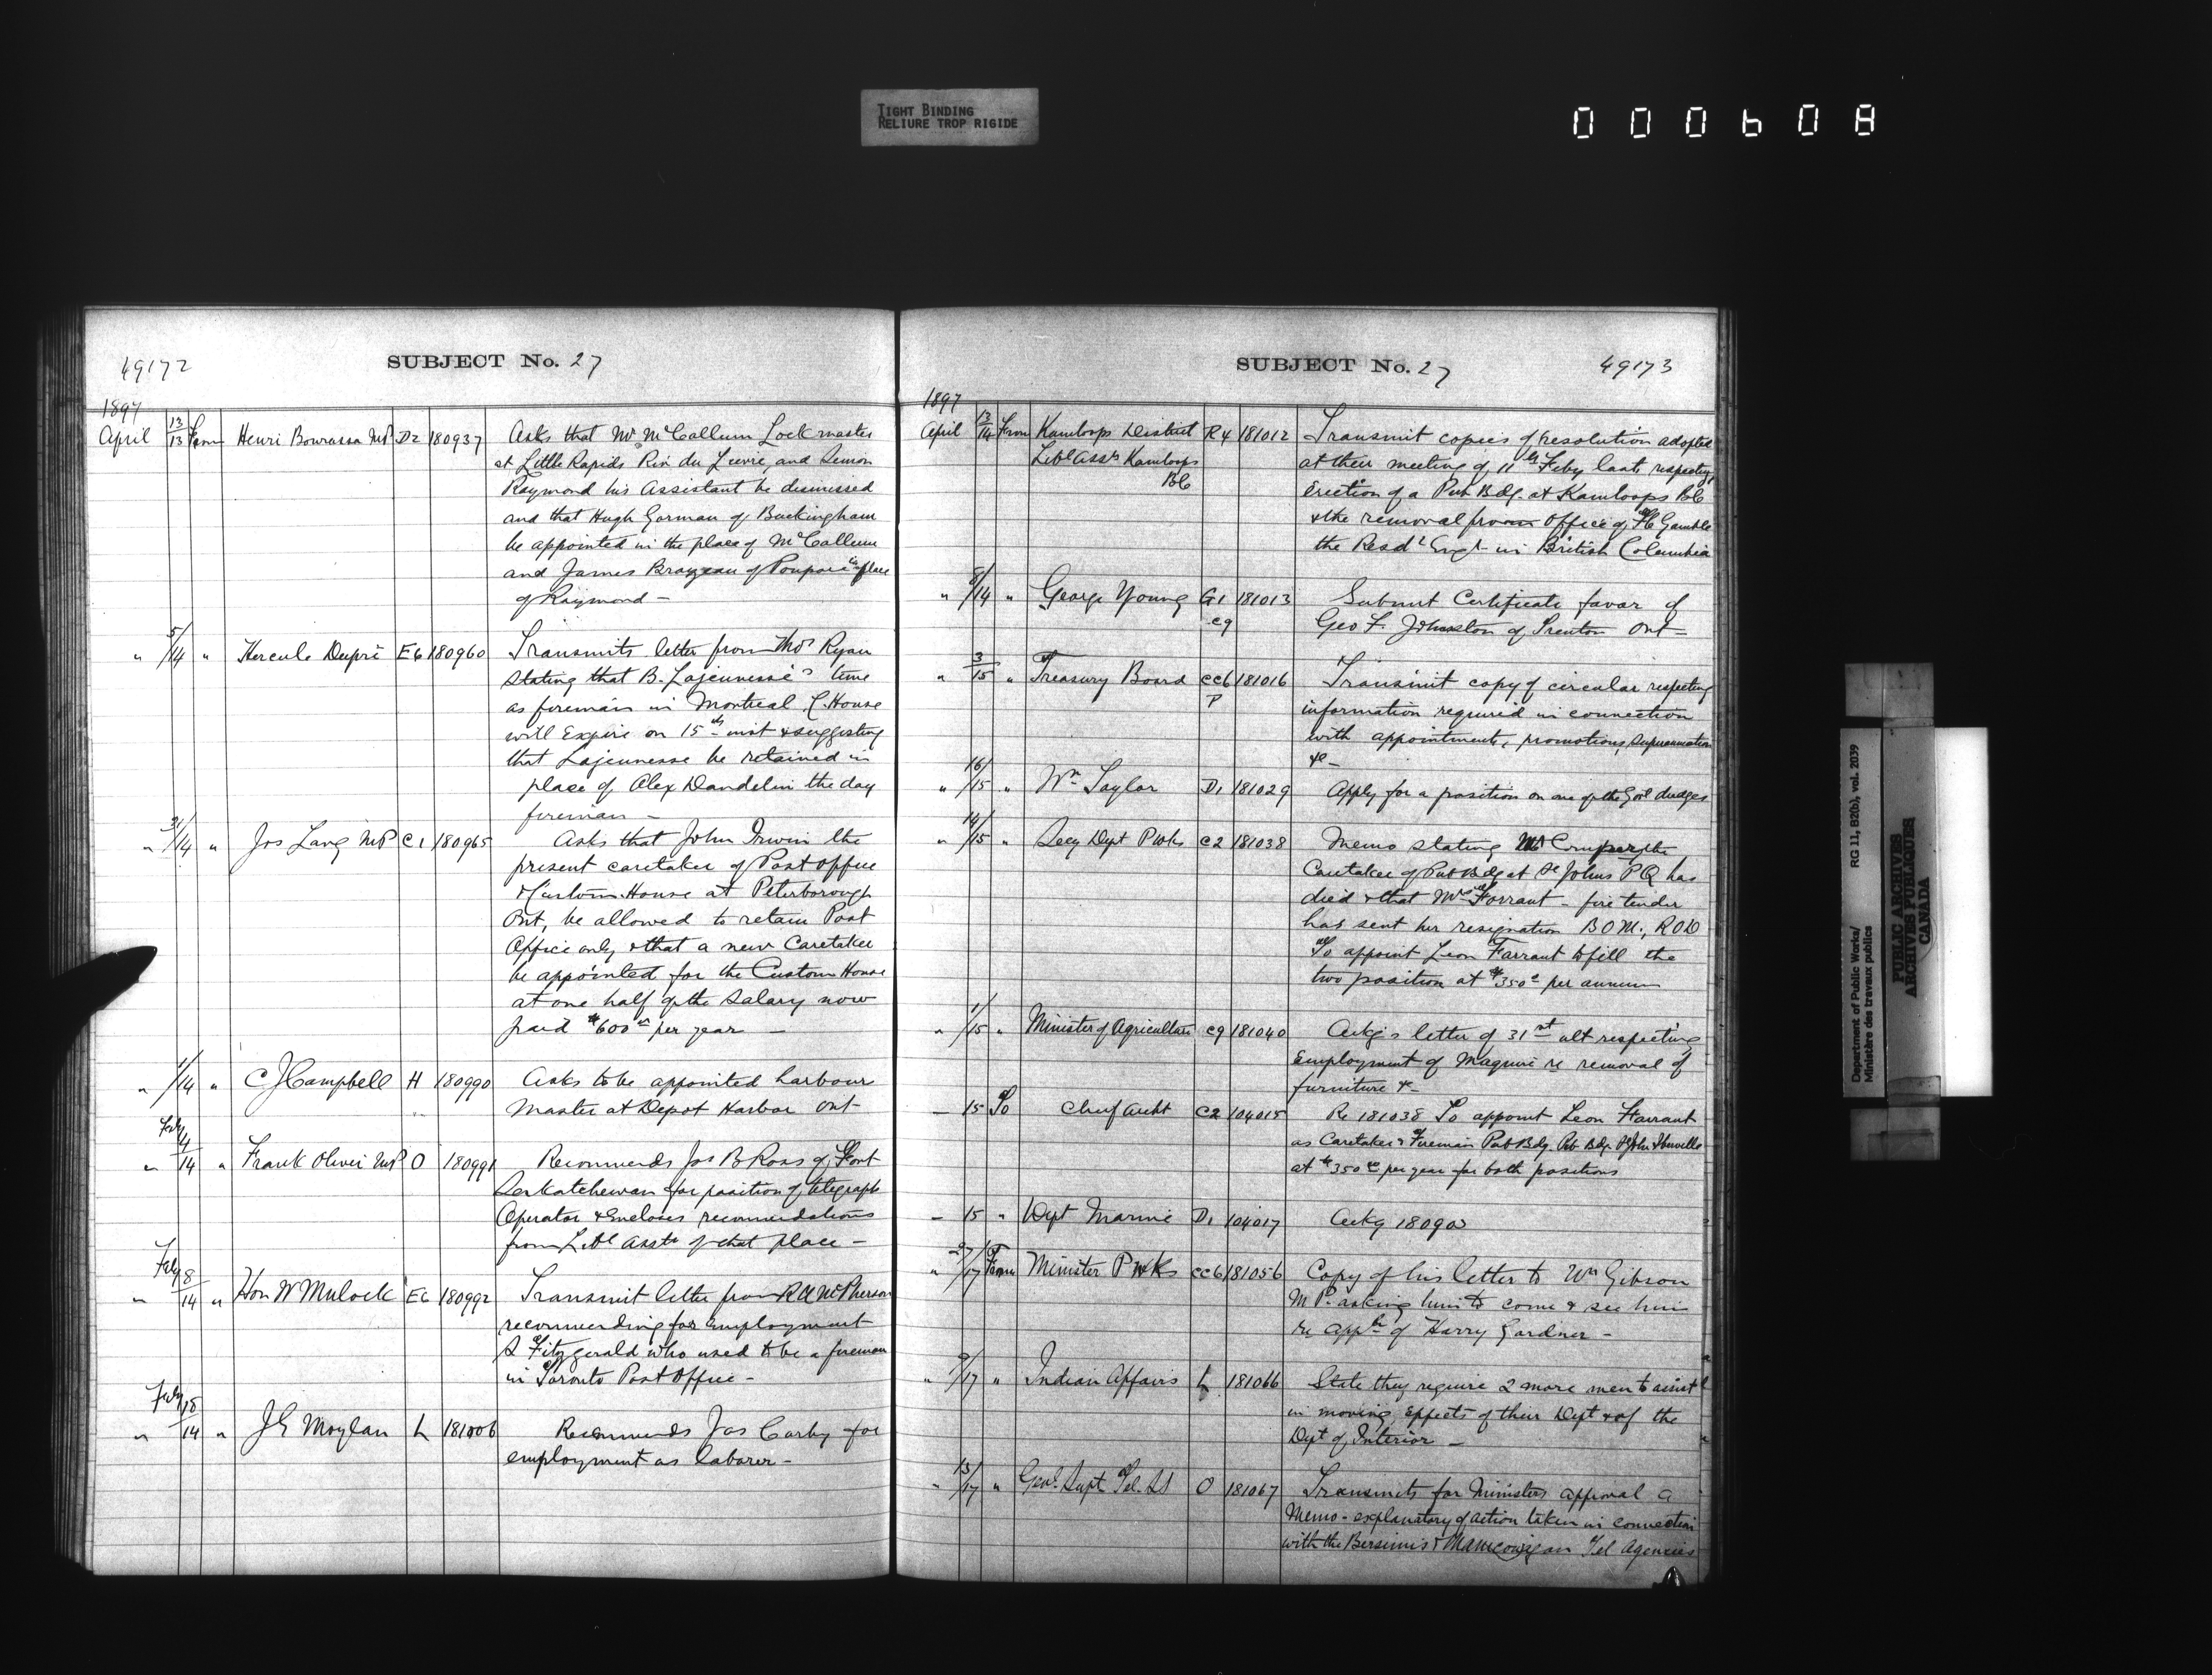 TIGHT BINDING
RELIURE TROP RIGIDE
000608
49172
SUBJECT No. 27
1897
April 13/13 From Henri Bourassa MP D2 180937 Asks that Mr McCallum Lock master
at Little Rapids Riv du Lievre, and Simon
Raymond his Assistant be dismissed
and that Hugh Gorman of Buckingham
be appointed in the place of McCallum
and James Brazeau of Poupore in place
of Raymond —
" 5/14 " Hercule Dupré E6 180960 Transmits letter from Thos Ryan
stating that B. Lajeunesse's time
as fireman in Montreal C. House
will Expire on 15th inst & suggesting
that Lajeunesse be retained in
place of Alex Dandelin the day
fireman —
" 31/14 " Jos Lang MP C1 180965 Asks that John Irwin the
present caretaker of Post Office
& Custom House at Peterborough
Ont, be allowed to retain Post
Office only & that a new Caretaker
be appointed for the Custom House
at one half of the Salary now
paid $600 00 per year —
" 1/14 " C J Campbell H 180990 Asks to be appointed harbour
Master at Depot Harbor Ont—
" Feby 4/14 " Frank Oliver MP O 180991 Recommends Jas B Ross of Fort
Saskatchewan for position of telegraph
Operator & Encloses recommendations
from Libl Asstn of that place —
" Feby 8/14 " Hon W Mulock E6 180992 Transmit letter from R A McPherson
recommending for Employment
S Fitzgerald who used to be a fireman
in Toronto Post Office —
" Feby 18/14 " J G Moylan L 181006 Recommends Jas Carby for
employment as laborer —
SUBJECT No. 27
49173
1897
April 13/14 From Kamloops District R4 181012 Transmit copies of resolution adopted
Libl Assn Kamloops at their meeting of 11th Feby last, respecting
BC Erection of a Pub Bdg. at Kamloops BC
& the removal from Office of F C Gamble
the Resdt Engr in British Columbia
" 8/14 " George Young G1 181013 Submit Certificate favor of
C9 Geo F. Johnston of Trenton Ont —
" 3/15 " Treasury Board CC6 181016 Transmit copy of circular respecting
P information required in connection
with appointments, promotions, Superannuation
&c —
" 16/15 " Wm Taylor D1 181029 Apply for a position on one of the Govt dredges
" 14/15 " Secy Dept P Wks C2 181038 Memo stating the
Caretaker of Pub Bdg at St Johns P Q has
died & that Mrs Farrant — fire tender
has sent her resignation B.O.M.,
To appoint Leon Farrant to fill the
two position at $350 00 per annum
" 1/15 " Minister of Agriculture C9 181040 Ackg's letter of 31st ult respecting
Employment of Maguire re removal of
furniture &—
— 15 To Chief Archt C2 104015 Re 181038 To appoint Leon Farrant
as Caretaker & Fireman Pub Bdg. Pub Bdg. St Johns Iberville
at $350 00 per year for both positions
— 15 " Dept Marine D1 104017 Ackg 180900
" 27/17 From Minister P Wks CC6 181056 Copy of his letter to Wm Gibson
M P. asking him to come & see him
re appln of Harry Gardner —
" 9/17 " Indian Affairs L 181066 State they require 2 more men to assist
in moving effects of their Dept & of the
Dept of Interior —
" 13/17 " Genl. Supt Tel. SS O 181067 Transmits for Ministers approval a
Memo — explanatory of action taken in connection
with the Bersimis & Manicouagan Tel Agencies
Department of Public Works/
Ministère des travaux publics
RG 11, B2(b), vol. 2039
PUBLIC ARCHIVES
ARCHIVES PUBLIQUES
CANADA